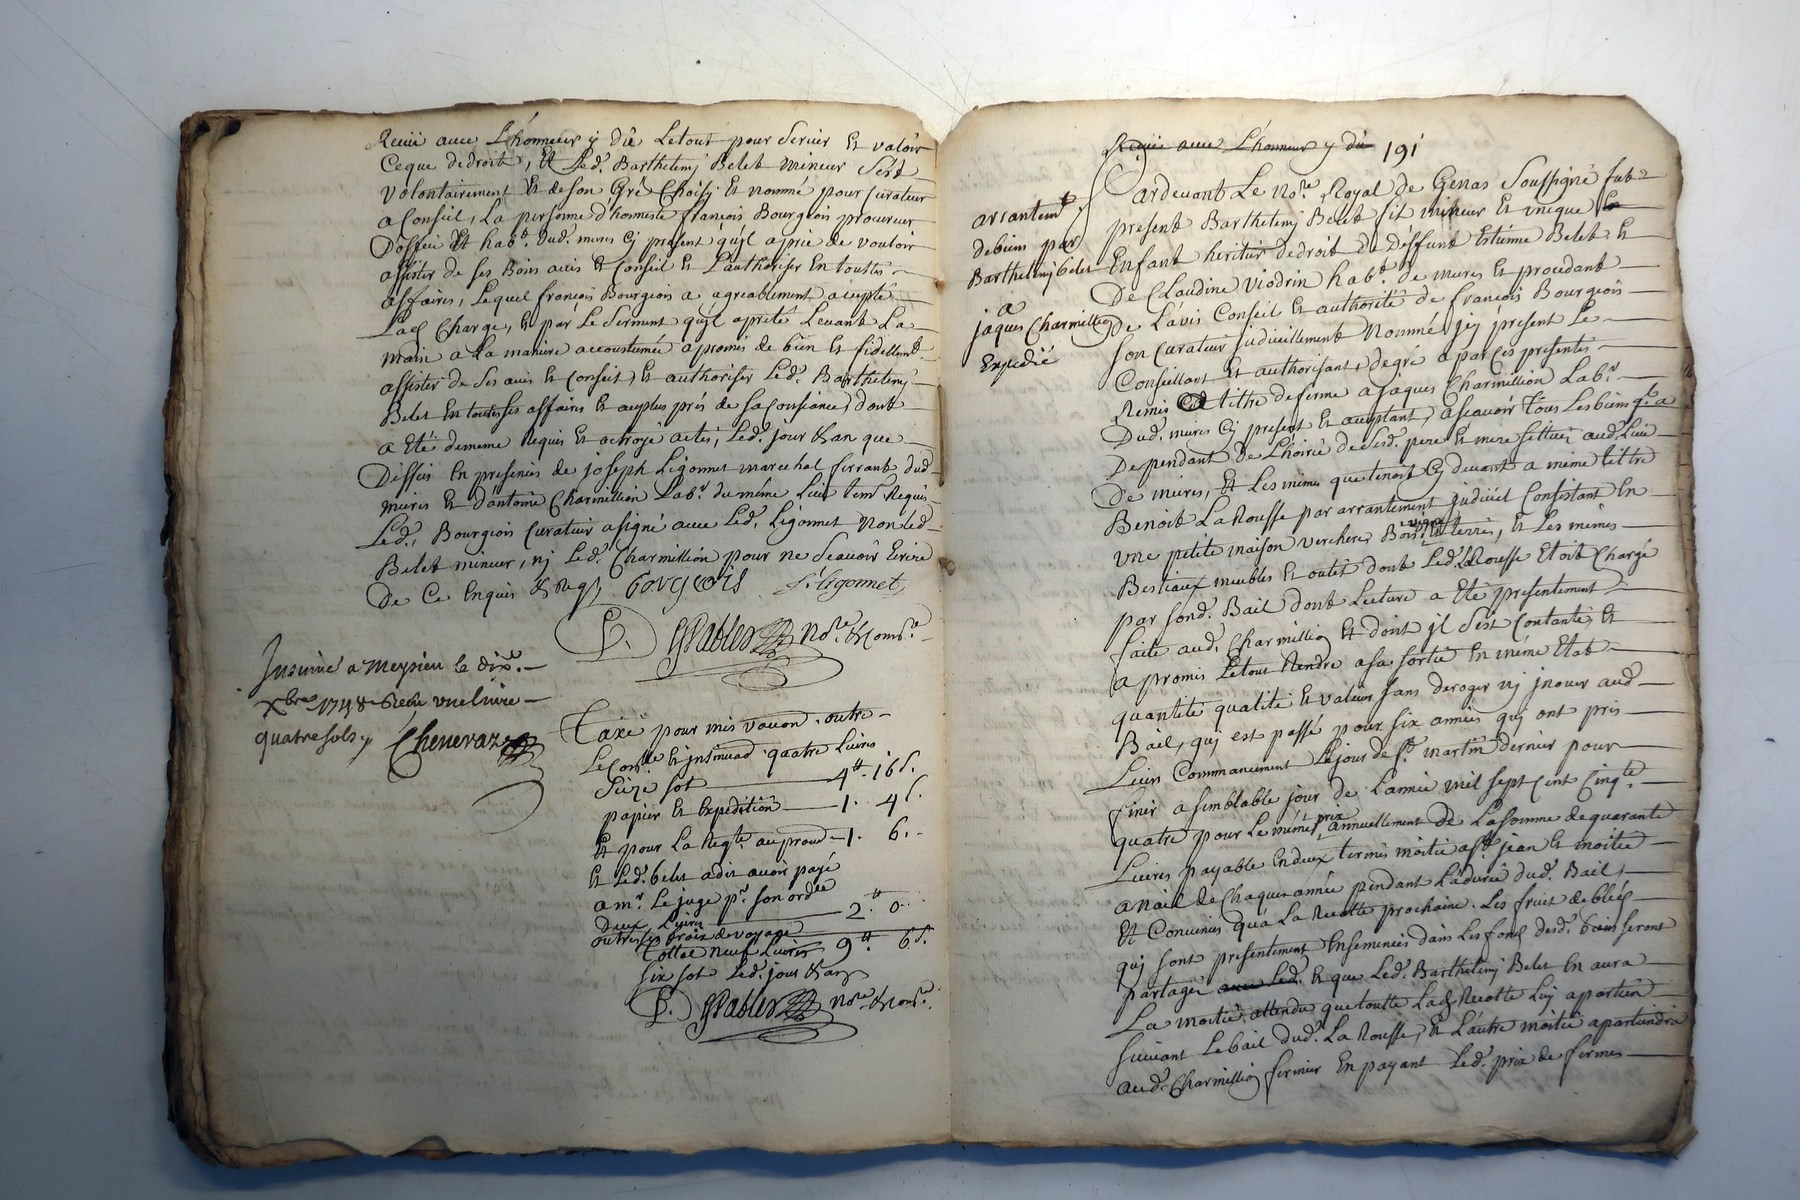 Reçüe avec L'honneur y dû Letout pour Servir Et valoir
Ceque dedroit, Et Led. Barthelemj Belet mineur S'est
volontairement Et deson Gré Choisj Et nommé pour Curateur
a Conseil, La personne d'honneste françois Bourgeois procureur
D'office Et habt. dud. mures Cj present qu'jl a prié de vouloir
assister de ses Bons avis Et Conseil Et L'authoriser En touttes
affaires, Lequel françois Bourgeois a agreablement accepté
Lad Charge, Et par Le Serment qu'jl a preté Levant La
main a La manière accoustumée a promis de bien Et fidellemt
assister de Ses avis Et Conseil, Et authoriser Led. Barthelemj
Belet En touttes ses affaires Et au plus prés de sa Consiance, dont
a Eté demême Requis Et octroyé actes, Led. jour & an que
Dessus En presences de joseph Ligonnet marechal ferrant dud
mures Et d'antoine Charmillion Labr. du même Lieu tem. Requis
Led. Bourgeois Curateur a signé avec Led. Ligonnet Non Led
Belet mineur, nj Led. Charmillion pour ne Scavoir Ecrire
De Ce Enquis & Reqs, bourgeois J. ligonnet
P. GPasles Nore. & Comre.
Insinué a Meysieu le dixe.
Xbre 1748 Reçu une livre
quatre sols Chenevaz
Taxé pour mes vacaon. outre
Le Conlle Et insinuaõ quatre Livres
Seize sol 4tt. 16s.
papier Et Expedition 1. 4s.
Et pour La Reqte au proud 1. 6.
Et Led. belet a dit avoir payé
a mr. Le juge pr. son ordce
Deux Livres 2.tt 0
outre les fraix de voyage
Tottal neuf Livres 9.tt 6s.
six sol Led. jour & an
P. GPasles Nore. & Comre.
Reçüe avec L'honneur y dû 191
arrantemt
debiens par
Barthelemj belet
a
jaques Charmillion
Expedié
Pardevant Le Nore. Royal de Genas Soussigné fut
present Barthelemj Belet fils mineur Et unique
Enfant heritier dedroit de Deffunt Estienne Belet Et
De Claudine Viodrin habt. de mures Et procedant
De L'avis Conseil Et authorité de françois Bourgeois
Son Curateur judiciellement Nommé jcj present Le
Conseillant Et authorisant, de gré a par Ces presentes
Remis a tittre de ferme a jaques Charmillion Labr.
Dud. mures Cj present Et acceptant, a scavoir Tous Les biens qe. a
Dependant de L'hoirie de cesd. pere Et mere scittués aud. Lieu
De mures, Et Les mêmes que tenoit Cj devant a même tittre
Benoit La Rousse par arrantement judiciel Consistant En
une petite maison vercheres Bois vigne Et terres, Et Les mêmes
Bestiaux meubles Et outils dont Led. La Rousse Etoit Chargé
par sond. Bail dont Lecture a Eté presentement
faite aud. Charmillion Et dont jl s'est Contanté, Et
a promis Letout Rendre a sa sortie En même Etat
quantité qualité Et valeur sans deroger nj jnover aud
Bail, quj est passé pour six années quj ont pris
Leurs Commancement Le jour de St. martin dernier pour
finir a semblable jour de L'année mil sept Cent Cinqte.
quatre pour Le même prix annuellement de La somme de quarante
Livres payable En deux termes moitié a St. jean Et moitié
a Noel de Chaque année pendant La durée dud. Bail,
Et Convenus qu'a La Recolte prochaine. Les fruit de bleds
quj sont presentement Ensemencés dans Les fond desd. biens seront
partager avec Led. Et que Led. Barthelemj Belet En aura
La moitié attendu que toutte Lad Recolte Luj apartien
suivant Le bail dud. La Rousse, Et L'autre moitié apartiendra
aud. Charmillion fermier En payant Led. prix de fermes